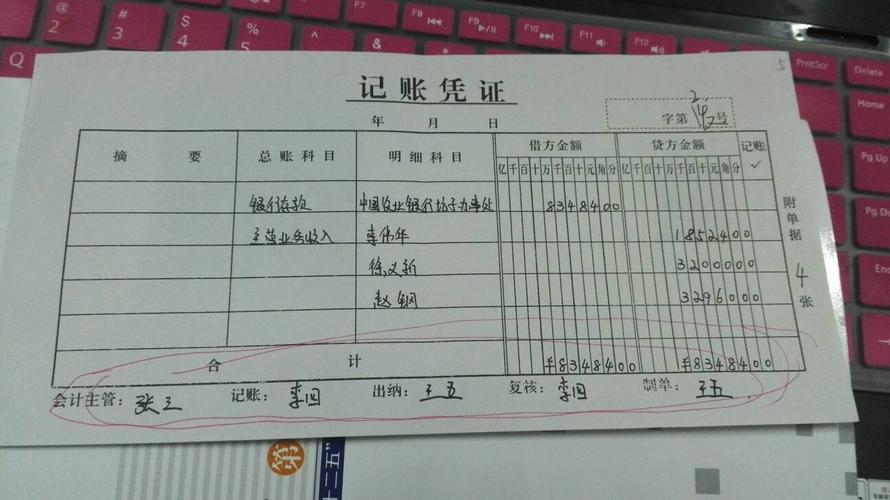 @ 2
# 3
$ 4
% 5
^
& 
F7
F8
F9
F10
F11
F12
PrntScr
Delete
Home
Pg Up
Pg Dn
End
Q
5
记账凭证
年 月 日
字第 号
摘要 总账科目 明细科目 借方金额 贷方金额 记账 ✓
亿千百十万千百十元角分 亿千百十万千百十元角分
银行存款 中国农业银行坊子办事处 8348400
主营业务收入 李伟华 1852400
徐义新 3200000
赵钢 3296000
合计 ¥8348400 ¥8348400
附单据 4 张
会计主管：张三 记账：李四 出纳：王五 复核：李四 制单：王五
第
十二五”